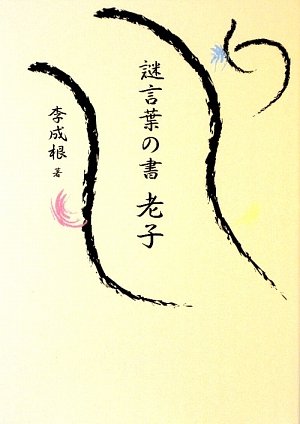 謎言葉の書 老子
李成根 著